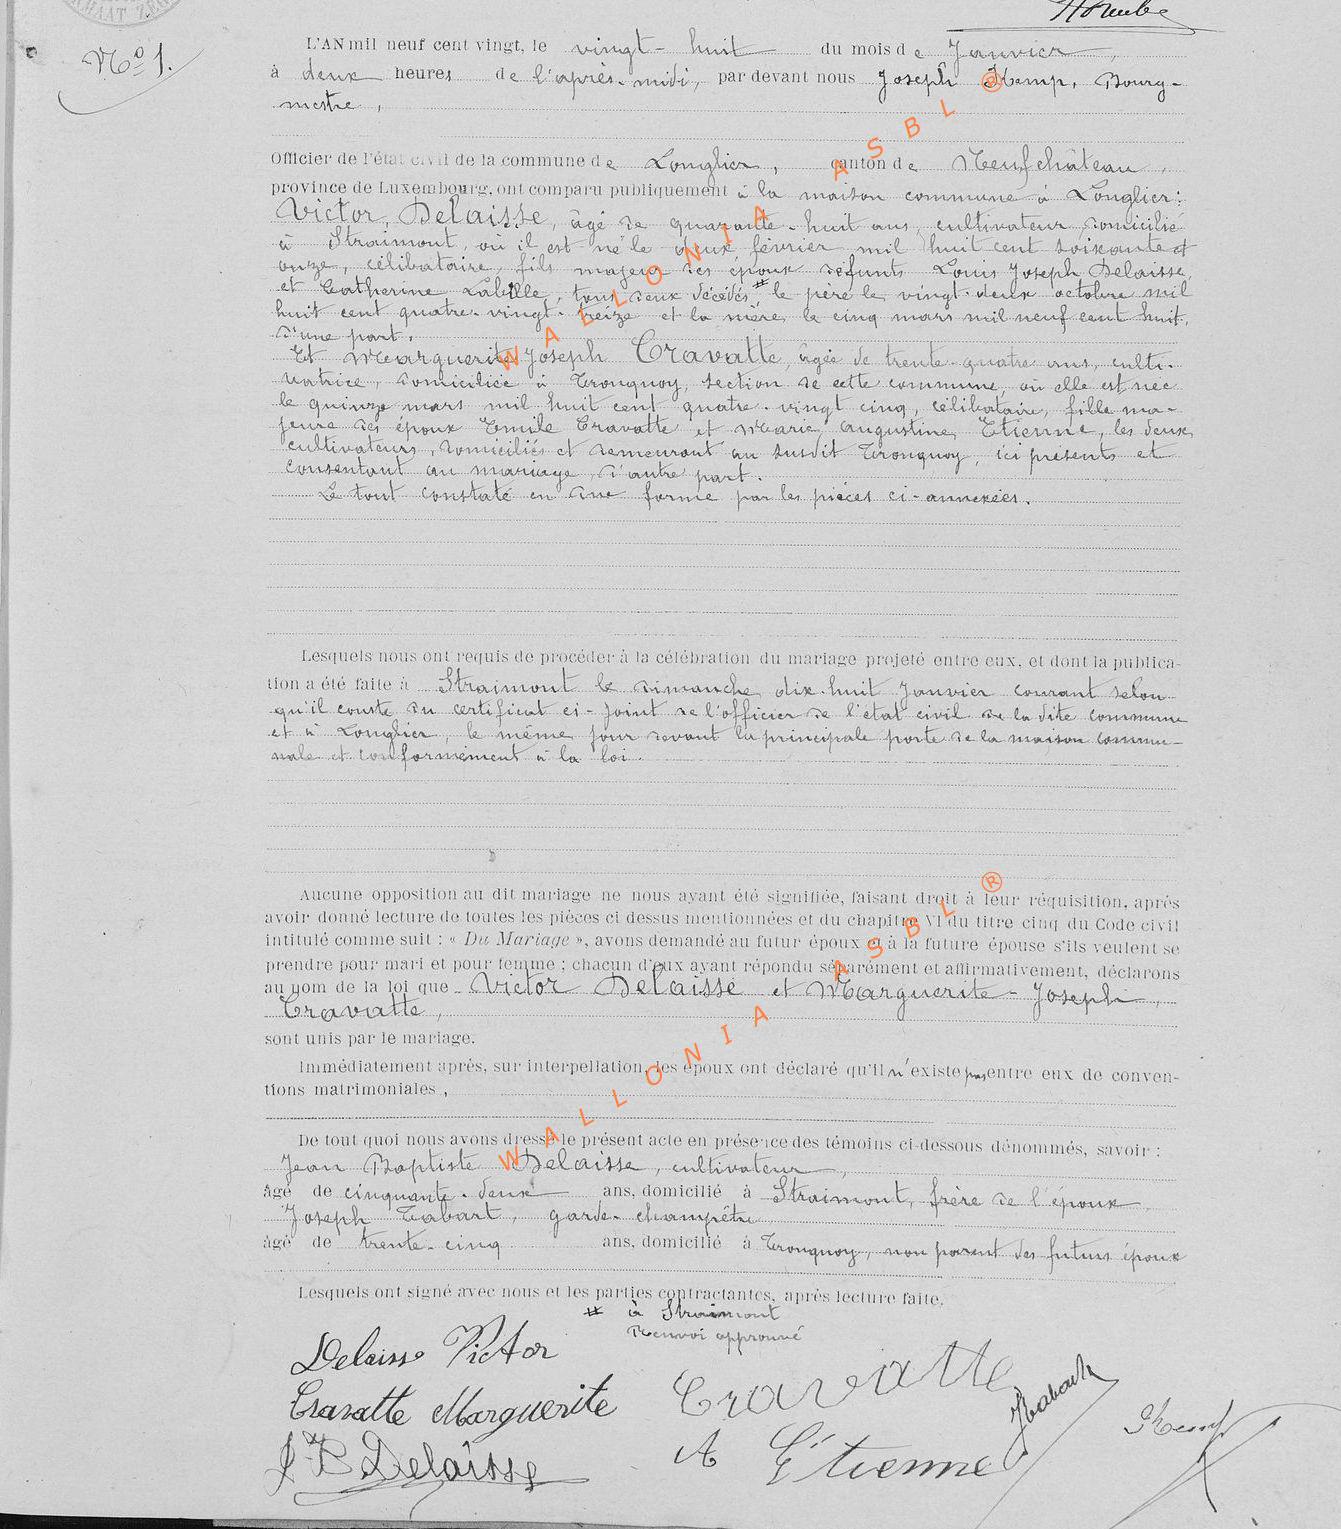 No 1.
L'AN mil neuf cent vingt, le vingt-huit du mois de Janvier,
à deux heures de l'après-midi, par devant nous Joseph Kemp, Bourg-
mestre,
Officier de l'état civil de la commune de Longlier, canton de Neufchâteau,
province de Luxembourg, ont comparu publiquement à la maison commune à Longlier:
Victor Delaisse, âgé de quarante-huit ans, cultivateur, domicilié
à Straimont, où il est né le deux février mil huit cent soixante et
onze, célibataire, fils majeur des époux défunts Louis Joseph Delaisse,
et Catherine Labille, tous deux décédés # le père le vingt-deux octobre mil
huit cent quatre-vingt-treize et la mère le cinq mars mil neuf cent huit,
d'une part.
Et Marguerite Joseph Cravatte, âgée de trente-quatre ans, culti-
vatrice, domiciliée à Tronquoy, section de cette commune, où elle est née
le quinze mars mil huit cent quatre-vingt cinq, célibataire, fille ma-
jeure des époux Emile Cravatte et Marie Augustine Etienne, les deux
cultivateurs, domiciliés et demeurant au susdit Tronquoy, ici présents et
consentant au mariage, d'autre part.
Le tout constaté en due forme par les pièces ci-annexées.
Lesquels nous ont requis de procéder à la célébration du mariage projeté entre eux, et dont la publica-
tion a été faite à Straimont le dimanche dix-huit Janvier courant selon
qu'il conste du certificat ci-joint de l'officier de l'état civil de la dite commune
et à Longlier, le même jour devant la principale porte de la maison commu-
nale et conformément à la loi.
Aucune opposition au dit mariage ne nous ayant été signifiée, faisant droit à leur réquisition, après
avoir donné lecture de toutes les pièces ci dessus mentionnées et du chapitre VI du titre cinq du Code civil
intitulé comme suit : « Du Mariage », avons demandé au futur époux et à la future épouse s'ils veulent se
prendre pour mari et pour femme ; chacun d'eux ayant répondu séparément et affirmativement, déclarons
au nom de la loi que Victor Delaisse et Marguerite-Joseph
Cravatte,
sont unis par le mariage.
Immédiatement après, sur interpellation, les époux ont déclaré qu'il n'existe pas entre eux de conven-
tions matrimoniales,
De tout quoi nous avons dressé le présent acte en présence des témoins ci-dessous dénommés, savoir :
Jean Baptiste Delaisse, cultivateur,
âgé de cinquante-deux ans, domicilié à Straimont, frère de l'époux
Joseph Tabart, garde-champêtre
âgé de trente-cinq ans, domicilié à Tronquoy, non parent des futurs époux
Lesquels ont signé avec nous et les parties contractantes, après lecture faite.
# à Straimont
Renvoi approuvé
Delaisse Victor
Cravatte Marguerite
Cravatte
JB Delaisse
A Etienne
WALLONIA ASBL ®
WALLONIA ASBL ®